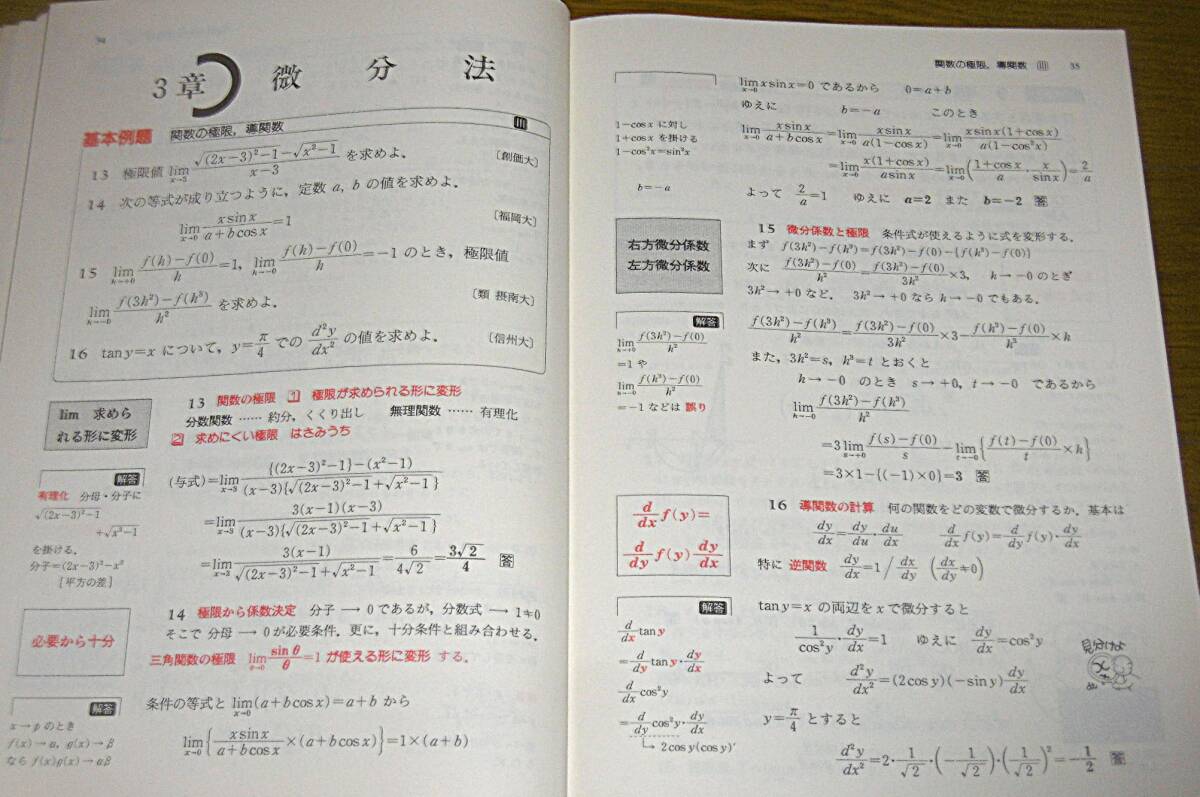 34
3章 微分法
基本例題 関数の極限，導関数 III
13 極限値 lim_{x→3} (√((2x−3)²−1)−√(x²−1))/(x−3) を求めよ． 〔創価大〕
14 次の等式が成り立つように，定数 a, b の値を求めよ．
lim_{x→0} (x sin x)/(a+b cos x)=1 〔福岡大〕
15 lim_{h→+0} (f(h)−f(0))/h=1, lim_{h→−0} (f(h)−f(0))/h=−1 のとき，極限値
lim_{h→−0} (f(3h²)−f(h³))/h² を求めよ． 〔類 摂南大〕
16 tan y=x について，y=π/4 での d²y/dx² の値を求めよ． 〔信州大〕
lim 求めら
れる形に変形
13 関数の極限 1 極限が求められる形に変形
分数関数 …… 約分，くくり出し 無理関数 …… 有理化
2 求めにくい極限 はさみうち
解答
有理化 分母・分子に
√((2x−3)²−1)
+√(x²−1)
を掛ける．
分子=(2x−3)²−x²
［平方の差］
(与式)=lim_{x→3} ({(2x−3)²−1}−(x²−1))/((x−3){√((2x−3)²−1)+√(x²−1)})
=lim_{x→3} (3(x−1)(x−3))/((x−3){√((2x−3)²−1)+√(x²−1)})
=lim_{x→3} (3(x−1))/(√((2x−3)²−1)+√(x²−1))=6/(4√2)=3√2/4 答
必要から十分
14 極限から係数決定 分子 → 0 であるが，分数式 → 1≠0
そこで 分母 → 0 が必要条件．更に，十分条件と組み合わせる．
三角関数の極限 lim_{θ→0} sin θ/θ=1 が使える形に変形 する．
解答
x→p のとき
f(x)→α, g(x)→β
なら f(x)g(x)→αβ
条件の等式と lim_{x→0}(a+b cos x)=a+b から
lim_{x→0}{(x sin x)/(a+b cos x)×(a+b cos x)}=1×(a+b)
関数の極限，導関数 III 35
lim_{x→0} x sin x=0 であるから 0=a+b
ゆえに b=−a このとき
1−cos x に対し
1+cos x を掛ける
1−cos²x=sin²x
b=−a
lim_{x→0} (x sin x)/(a+b cos x)=lim_{x→0} (x sin x)/(a(1−cos x))=lim_{x→0} (x sin x(1+cos x))/(a(1−cos²x))
=lim_{x→0} (x(1+cos x))/(a sin x)=lim_{x→0}((1+cos x)/a・x/sin x)=2/a
よって 2/a=1 ゆえに a=2 また b=−2 答
右方微分係数
左方微分係数
15 微分係数と極限 条件式が使えるように式を変形する．
まず f(3h²)−f(h³)=f(3h²)−f(0)−{f(h³)−f(0)}
次に (f(3h²)−f(0))/h²=(f(3h²)−f(0))/3h²×3, h→−0 のとき
3h²→+0 など． 3h²→+0 なら h→−0 でもある．
解答
lim_{h→+0} (f(3h²)−f(0))/h²
=1 や
lim_{h→−0} (f(h³)−f(0))/h²
=−1 などは 誤り
(f(3h²)−f(h³))/h²=(f(3h²)−f(0))/3h²×3−(f(h³)−f(0))/h³×h
また，3h²=s, h³=t とおくと
h→−0 のとき s→+0, t→−0 であるから
lim_{h→−0} (f(3h²)−f(h³))/h²
=3 lim_{s→+0} (f(s)−f(0))/s−lim_{t→−0}{(f(t)−f(0))/t×h}
=3×1−{(−1)×0}=3 答
d/dx f(y)=
d/dy f(y) dy/dx
16 導関数の計算 何の関数をどの変数で微分するか．基本は
dy/dx=dy/du・du/dx d/dx f(y)=d/dy f(y)・dy/dx
特に 逆関数 dy/dx=1/(dx/dy) (dx/dy≠0)
解答
d/dx tan y
=d/dy tan y・dy/dx
d/dx cos²y
=d/dy cos²y・dy/dx
→2cos y(cos y)′
tan y=x の両辺を x で微分すると
1/cos²y・dy/dx=1 ゆえに dy/dx=cos²y
よって d²y/dx²=(2cos y)(−sin y)dy/dx
見分けよ
x
y=π/4 とすると
d²y/dx²=2・1/√2・(−1/√2)・(1/√2)²=−1/2 答